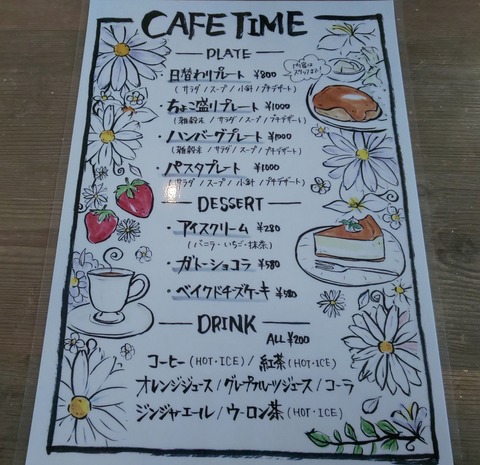 CAFE TIME
PLATE
・日替わりプレート ¥800
(サラダ/スープ/小鉢/プチデザート)
内容はスタッフまで!
・ちょこ盛りプレート ¥1000
(雑穀米/サラダ/スープ/プチデザート)
・ハンバーグプレート ¥1000
(雑穀米/サラダ/スープ/プチデザート)
・パスタプレート ¥1000
(サラダ/スープ/小鉢/プチデザート)
DESSERT
・アイスクリーム ¥280
(バニラ・いちご・抹茶)
・ガトーショコラ ¥580
・ベイクドチーズケーキ ¥580
DRINK
ALL ¥200
コーヒー(HOT・ICE)/紅茶(HOT・ICE)
オレンジジュース/グレープフルーツジュース/コーラ
ジンジャエール/ウーロン茶(HOT・ICE)